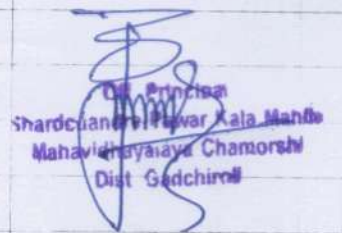 Principal
Pawar Kala Mahila
Mahavidhayalaya Chamorshi
Dist Gadchiroli